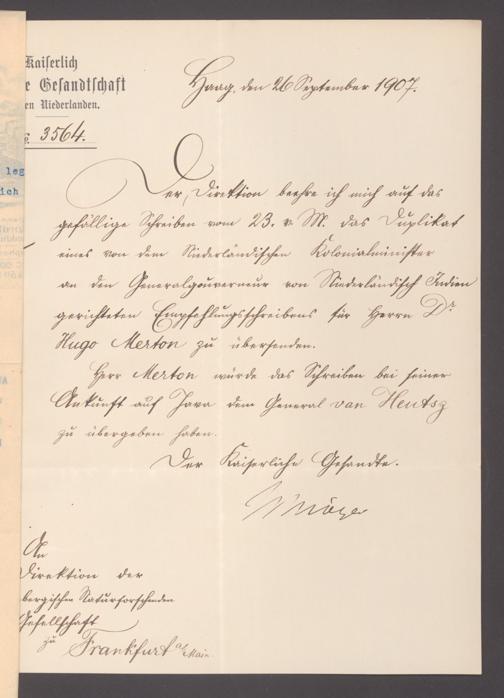 Kaiserlich
e Gesandtschaft
en Niederlanden.
3564.
Haag, den 26 September 1907.
leg
ich
Der Direktion beehre ich mich auf das
gefällige Schreiben vom 23. v. M. das Duplikat
eines von dem Niederländischen Kolonialminister
an den Generalgouverneur von Niederländisch Indien
gerichteten Empfehlungsschreibens für Herrn Dr.
Hugo Merton zu übersenden.
Herr Merton würde das Schreiben bei seiner
Ankunft auf Java dem General van Heutsz
zu übergeben haben.
Der Kaiserliche Gesandte.
An
Direktion der
bergischen Naturforschenden
Gesellschaft
zu Frankfurt a/Main